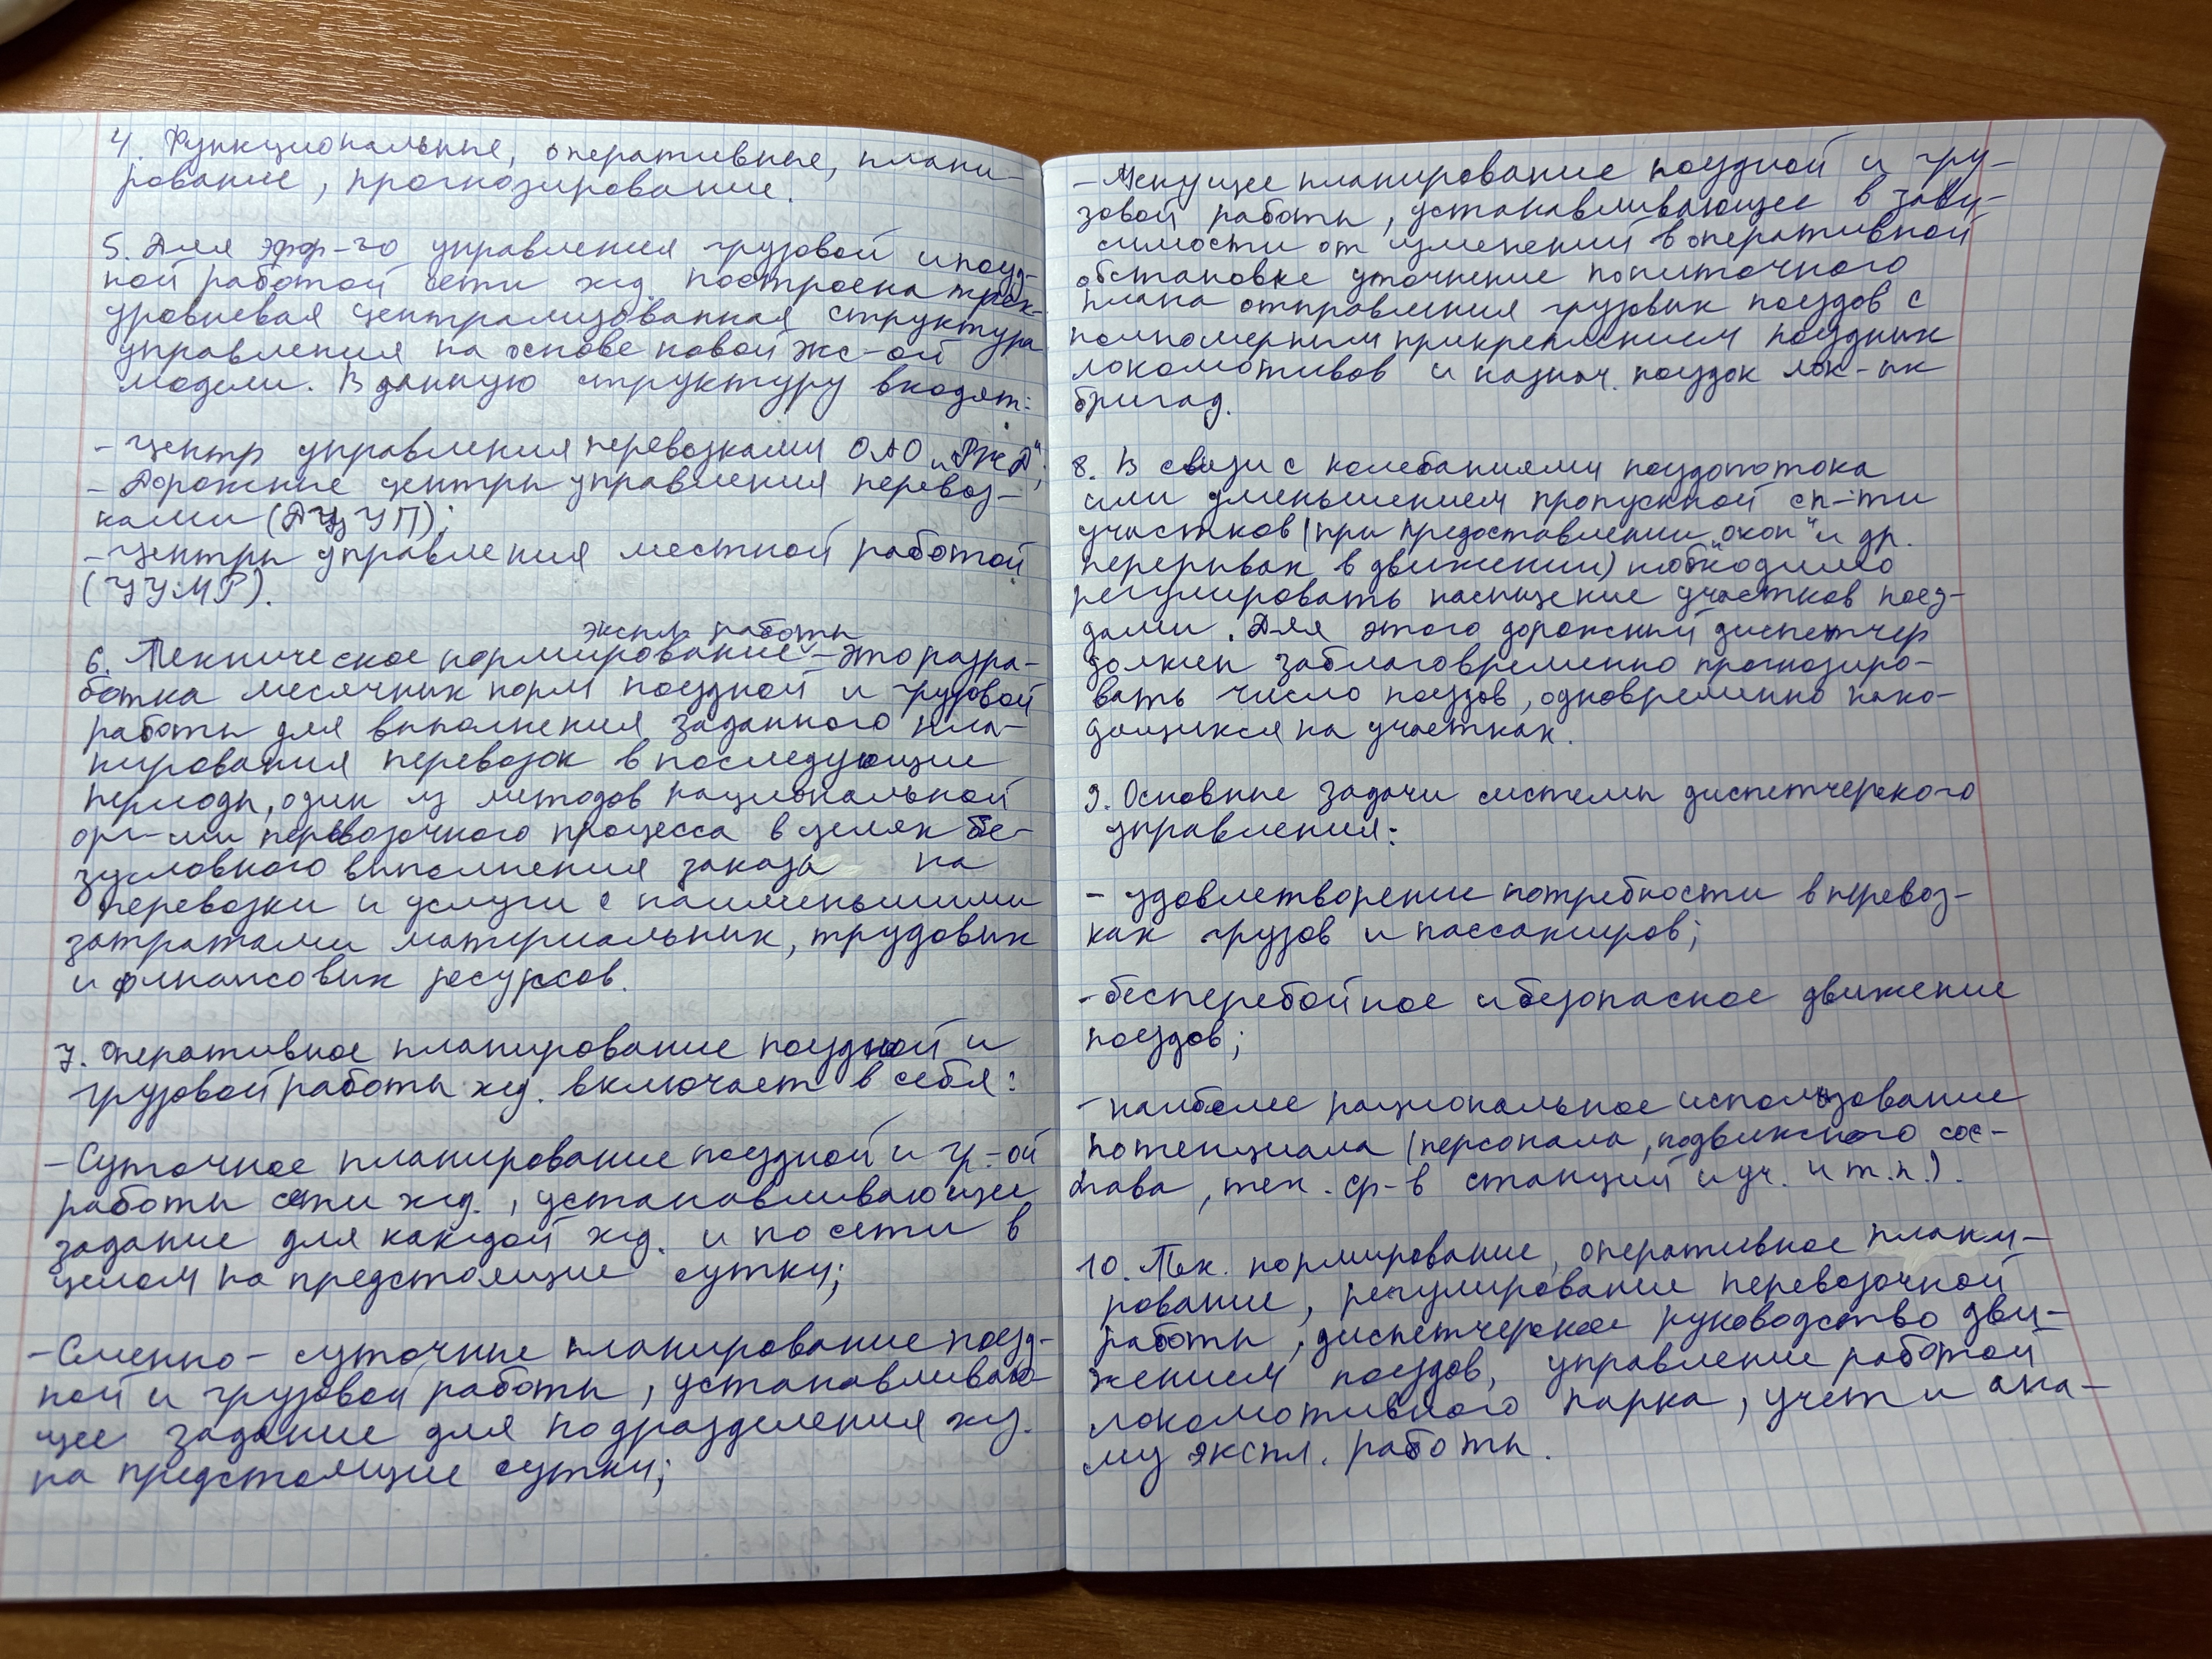 4. Функциональные, оперативные, плани-
рование, прогнозирование.
5. Для эфф-го управления грузовой и поезд-
ной работой сети жд. построена трех-
уровневая централизованная структура
управления на основе новой экс-ой
модели. В данную структуру входят:
- Центр управления перевозками ОАО „РЖД";
- Дорожные центры управления перевоз-
ками (ДЦУП);
- Центры управления местной работой
(ЦУМР).
экспл. работы
6. Техническое нормирование - это разра-
ботка месячных норм поездной и грузовой
работы для выполнения заданного пла-
нирования перевозок в последующие
периоды, один из методов рациональной
орг-ии перевозочного процесса в целях бе-
зусловного выполнения заказа на
перевозки и услуги с наименьшими
затратами материальных, трудовых
и финансовых ресурсов.
7. Оперативное планирование поездной и
грузовой работы жд. включает в себя:
- Суточное планирование поездной и гр-ой
работы сети жд., устанавливающее
задание для каждой жд. и по сети в
целом на предстоящие сутки;
- Сменно-суточные планирование поезд-
ной и грузовой работы, устанавливаю-
щее задание для подразделения жд.
на предстоящие сутки;
- Текущее планирование поездной и гру-
зовой работы, устанавливающее в зави-
симости от изменений в оперативной
обстановке уточнение пониточного
плана отправления грузовых поездов с
полномерным прикреплением поездных
локомотивов и назнач. поездок лок-ых
бригад.
8. В связи с колебаниями поездопотока
или уменьшением пропускной сп-ти
участков (при предоставлении „окон" и др.
перерывах в движении) необходимо
регулировать насыщение участков поез-
дами. Для этого дорожный диспетчер
должен заблаговременно прогнозиро-
вать число поездов, одновременно нахо-
дящихся на участках.
9. Основные задачи системы диспетчерского
управления:
- удовлетворение потребности в перевоз-
ках грузов и пассажиров;
- бесперебойное и безопасное движение
поездов;
- наиболее рациональное использование
потенциала (персонала, подвижного сос-
тава, тех. ср-в станций и уч. и т.п.).
10. Тех. нормирование, оперативное плани-
рование, регулирование перевозочной
работы, диспетчерское руководство дви-
жением поездов, управление работой
локомотивного парка, учет и ана-
лиз экспл. работы.